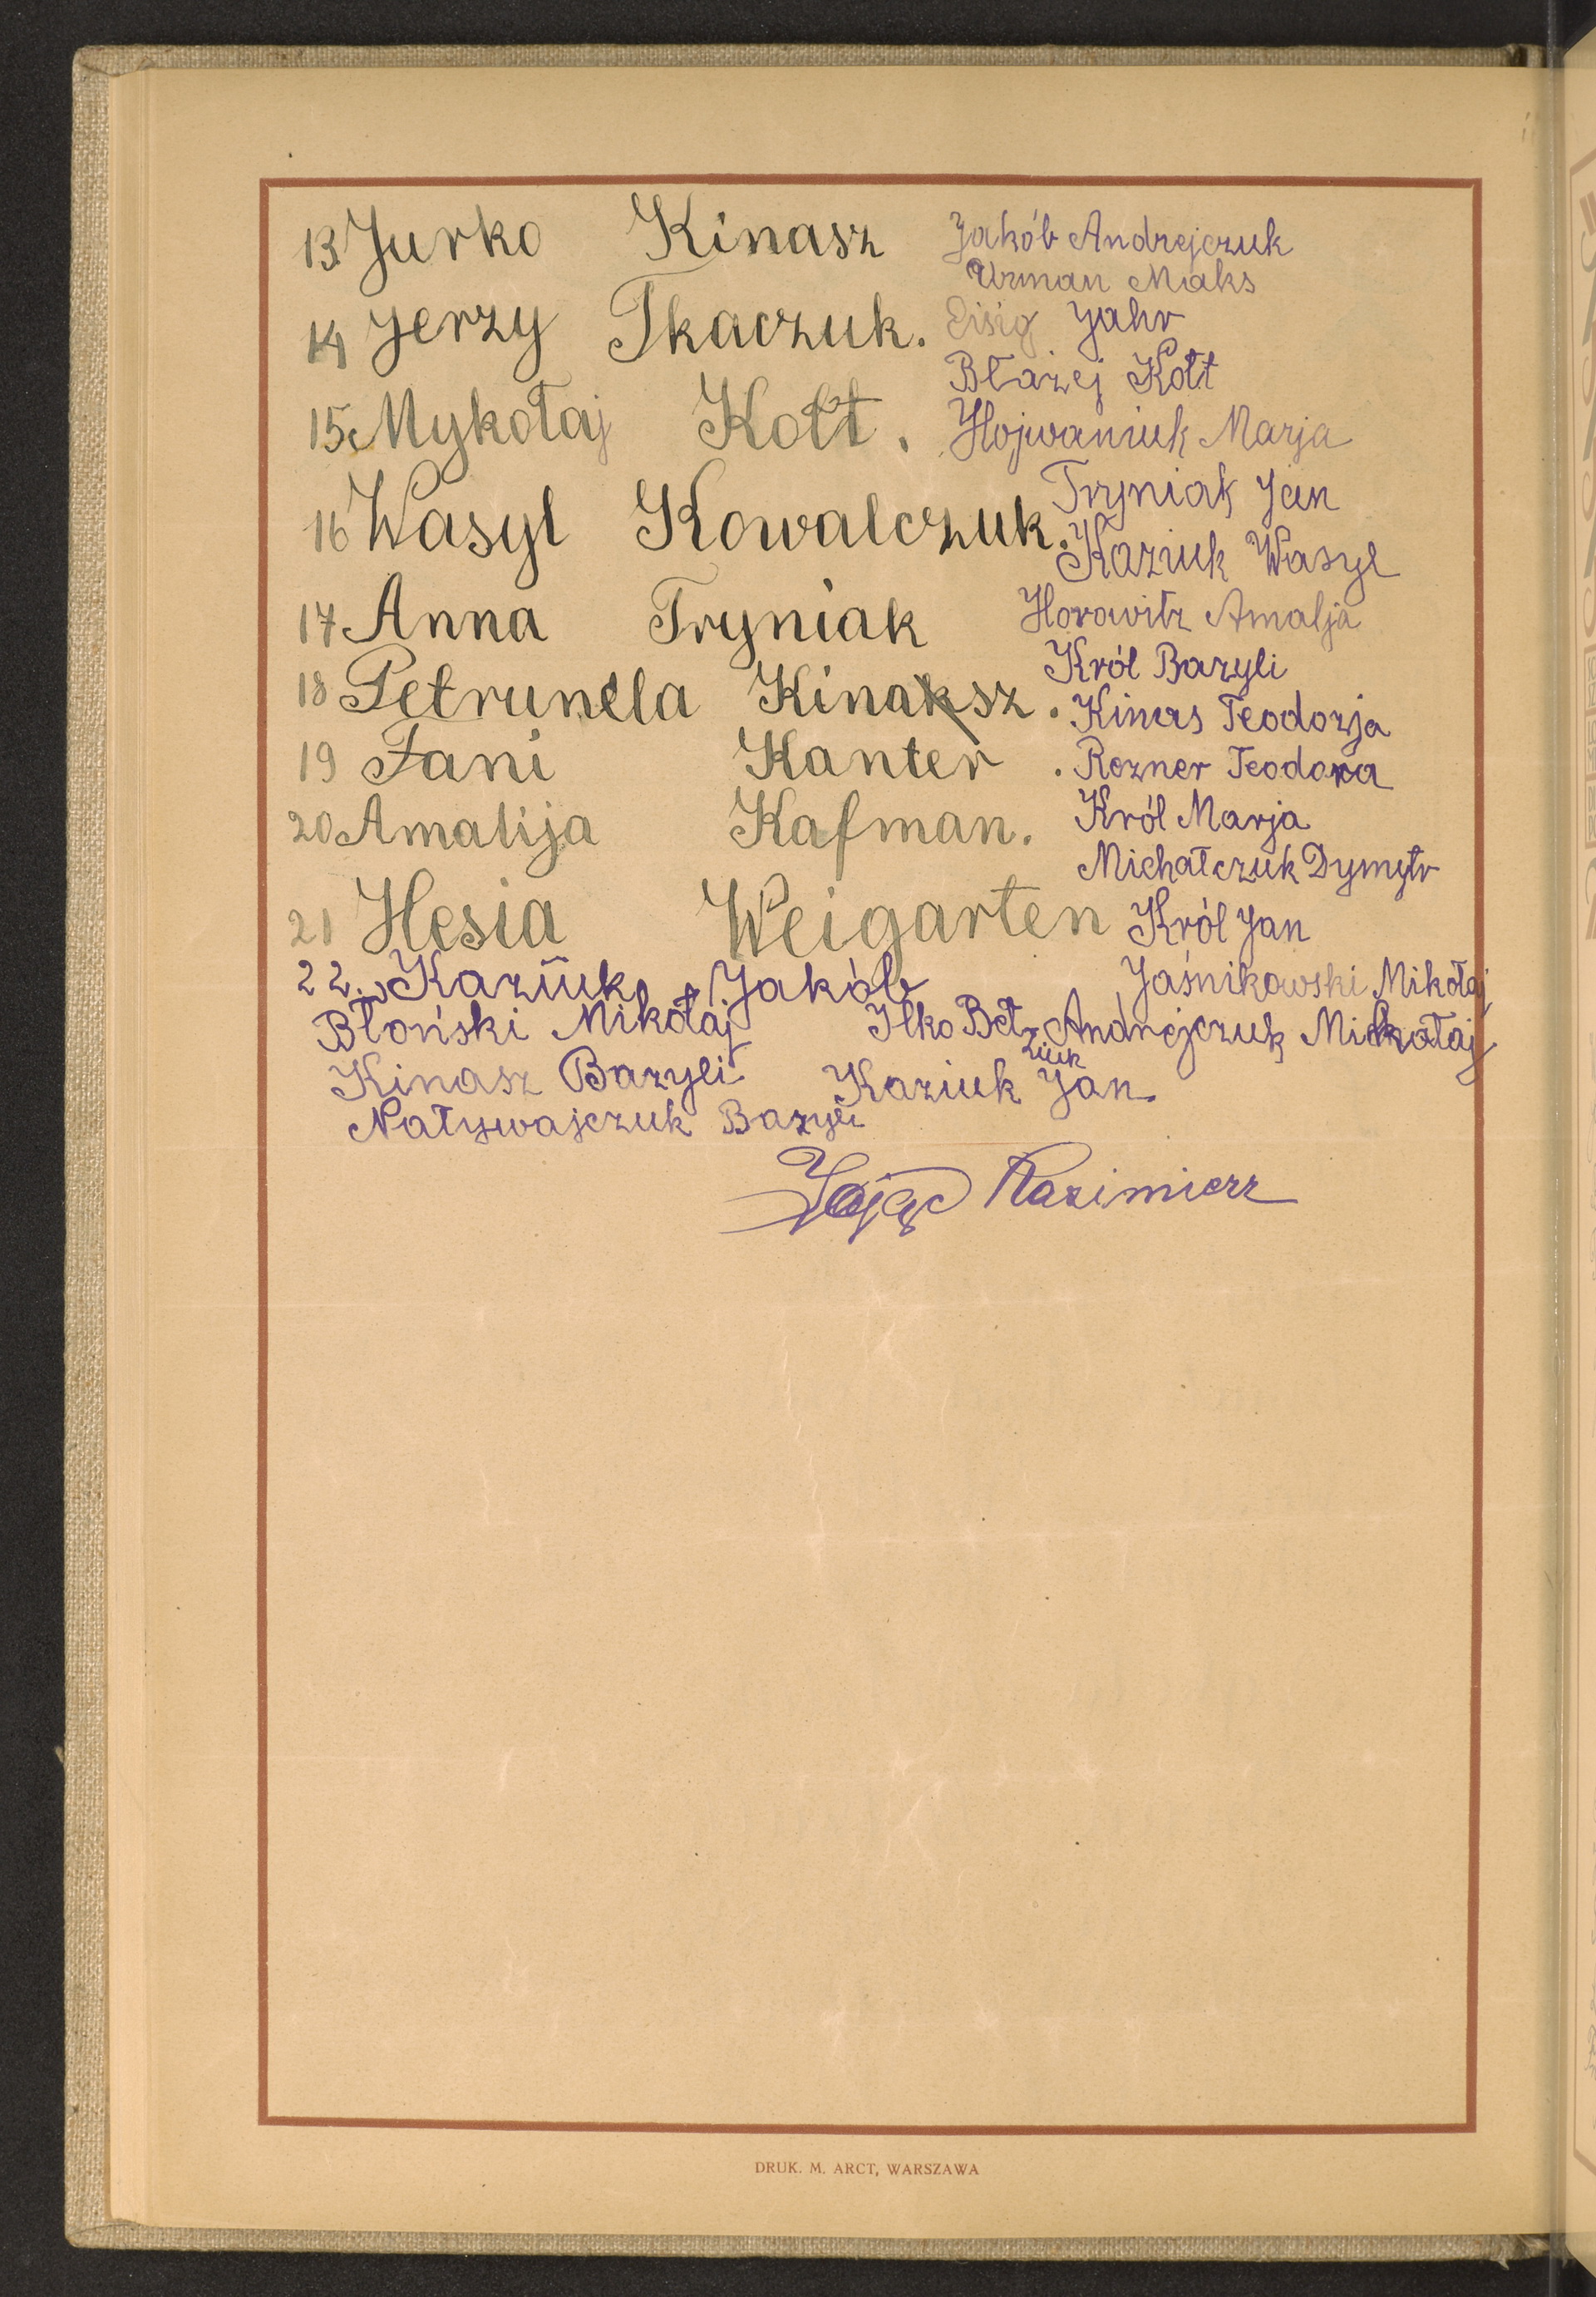 13 Jurko Kinasz
14 Jerzy Tkaczuk.
15 Mykołaj Kott.
16 Wasyl Kowalczuk.
17 Anna Tryniak
18 Petrunela Kinaksz.
19 Fani Kanter.
20 Amalija Kafman.
21 Hesia Weigarten
22. Kaziuk Jakób
Jakób Andrejczuk
Urman Maks
Eisig Jahr
Błażej Kott
Hojwaniuk Marja
Tryniak Jan
Kaziuk Wasyl
Horowitz Amalja
Król Bazyli
Kinas Teodozja
Rozner Teodora
Król Marja
Michałczuk Dymytr
Król Jan
Jaśnikowski Mikołaj
Błoński Mikołaj
Ilko Betziuk
Andrejczuk Mikołaj
Kinasz Bazyli
Kaziuk Jan
Natywajczuk Bazyli
Zając Kazimierz
DRUK. M. ARCT, WARSZAWA